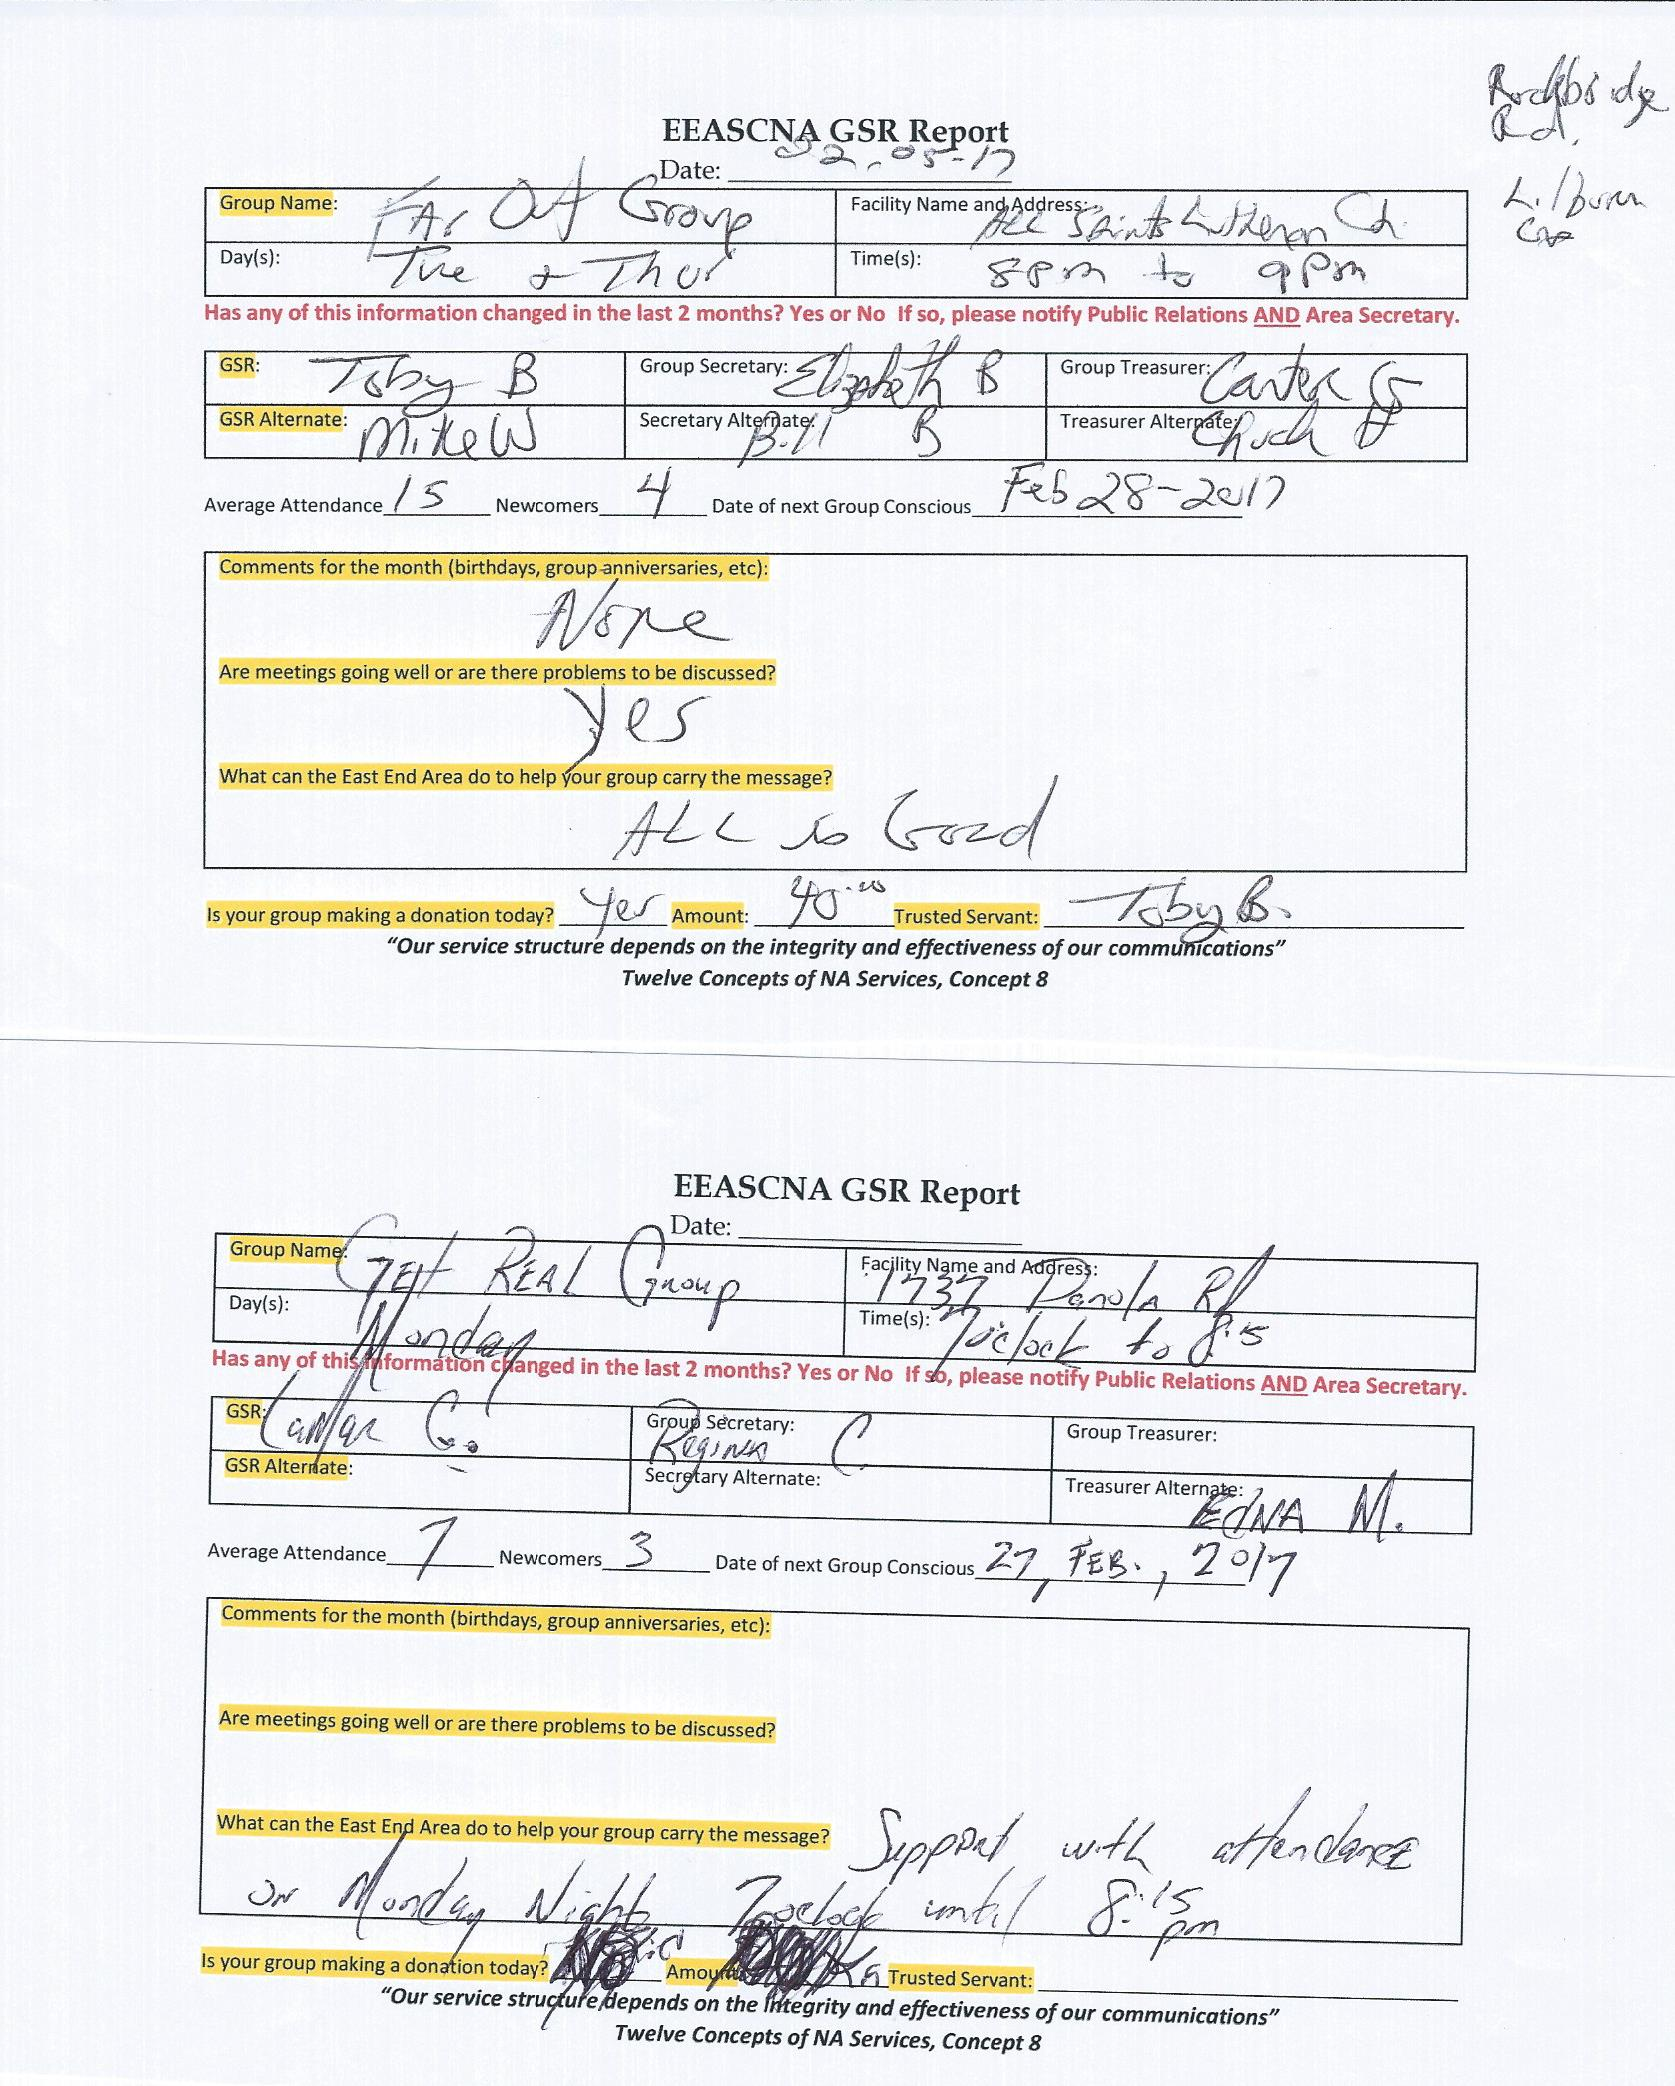 Rockbridge
Rd.
Lilburn
EEASCNA GSR Report
Date: 02-05-17
Group Name: Far Out Group Facility Name and Address: ALL Saints Lutheran Ch.
Day(s): Tue & Thur Time(s): 8pm to 9pm
Has any of this information changed in the last 2 months? Yes or No If so, please notify Public Relations AND Area Secretary.
GSR: Toby B Group Secretary: Elizabeth B Group Treasurer: Carter G
GSR Alternate: Mike W Secretary Alternate: Bill B Treasurer Alternate: Chuck
Average Attendance 15 Newcomers 4 Date of next Group Conscious Feb 28-2017
Comments for the month (birthdays, group anniversaries, etc):
None
Are meetings going well or are there problems to be discussed?
Yes
What can the East End Area do to help your group carry the message?
ALL is Good
Is your group making a donation today? Yes Amount: 40.00 Trusted Servant: Toby B.
“Our service structure depends on the integrity and effectiveness of our communications”
Twelve Concepts of NA Services, Concept 8
EEASCNA GSR Report
Date:
Group Name: GEt REAL Group Facility Name and Address: 1737 Panola Rd
Day(s): Monday Time(s): 7o'clock to 8:15
Has any of this information changed in the last 2 months? Yes or No If so, please notify Public Relations AND Area Secretary.
GSR: LaMar C. Group Secretary: Regina C Group Treasurer:
GSR Alternate: Secretary Alternate: Treasurer Alternate: EdNA M.
Average Attendance 7 Newcomers 3 Date of next Group Conscious 27, FEB., 2017
Comments for the month (birthdays, group anniversaries, etc):
Are meetings going well or are there problems to be discussed?
What can the East End Area do to help your group carry the message? Support with attendance
on Monday Nights 7oclock until 8:15
pm
Is your group making a donation today? Amount: Trusted Servant:
“Our service structure depends on the integrity and effectiveness of our communications”
Twelve Concepts of NA Services, Concept 8